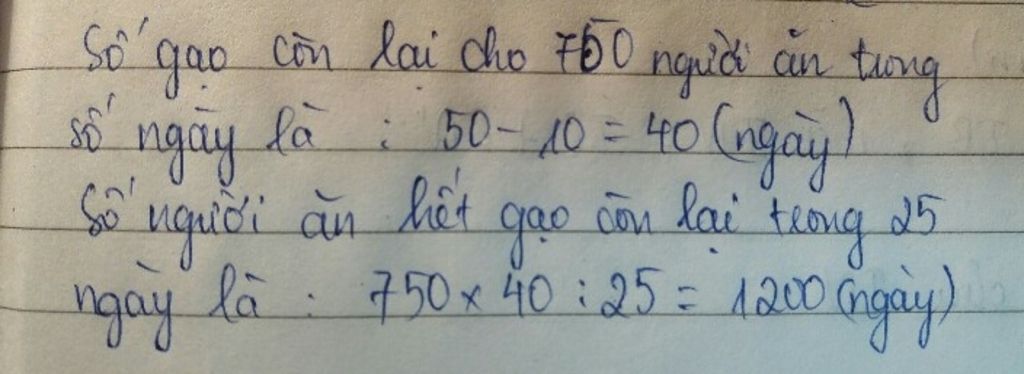 Số gạo còn lại cho 750 người ăn trong
số ngày là : 50 - 10 = 40 (ngày)
Số người ăn hết gạo còn lại trong 25
ngày là : 750 x 40 : 25 = 1200 (ngày)